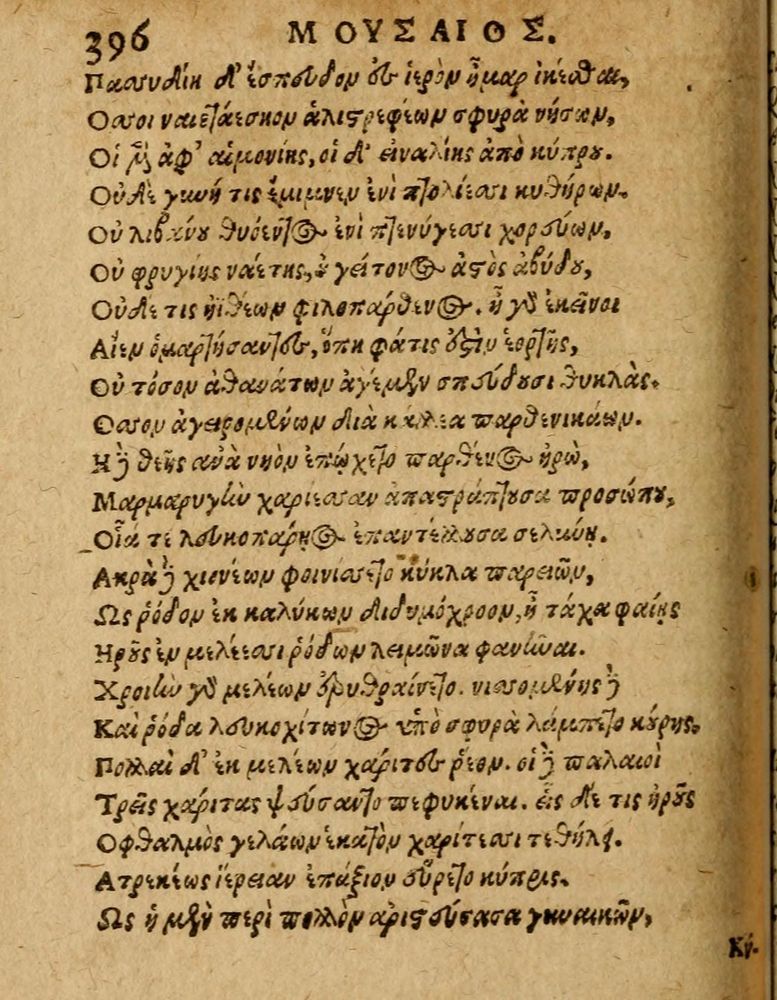 396 ΜΟΥΣΑΙΟΣ.
Πασσυδίη δ' ἔσπευδον ἐς ἱερὸν ἦμαρ ἱκέσθαι,
Οσσοι ναιετάεσκον ἁλιστρεφέων σφυρὰ νήσων,
Οἱ μὲν ἀφ' αἱμονίης, οἱ δ' εἰναλίης ἀπὸ κύπρου.
Οὐδὲ γυνή τις ἔμιμνεν ἐνὶ πτολίεσσι κυθήρων.
Οὐ λιβάνου θυόεντος ἐνὶ πτερύγεσσι χορεύων,
Οὐ φρυγίης ναέτης, οὐ γείτονος ἀστὸς ἀβύδου,
Οὐδέ τις ἠϊθέων φιλοπάρθενος. ἦ γὰρ ἐκεῖνοι
Αἰὲν ὁμαρτήσαντες, ὅπη φάτις ἐστὶν ἑορτῆς,
Οὐ τόσον ἀθανάτων ἀγέμεν σπεύδουσι θυηλὰς.
Οσσον ἀγειρομένων διὰ κάλλεα παρθενικάων.
Η δὲ θεῆς ἀνὰ νηὸν ἐπῴχετο παρθένος ἡρὼ,
Μαρμαρυγὴν χαρίεσσαν ἀπαστράπτουσα προσώπου,
Οἷά τε λευκοπάρῃος ἐπαντέλλουσα σελήνη.
Ακρὰ δὲ χιονέων φοινίσσετο κύκλα παρειῶν,
Ως ῥόδον ἐκ καλύκων διδυμόχροον, ἦ τάχα φαίης
Ηροῦς ἐν μελέεσσι ῥόδων λειμῶνα φανῆναι.
Χροιὴν γὰρ μελέων ἐρυθραίνετο. νισσομένης δὲ
Καὶ ῥόδα λευκοχίτωνος ὑπὸ σφυρὰ λάμπετο κούρης.
Πολλαὶ δ' ἐκ μελέων χάριτες ῥέον. οἱ δὲ παλαιοὶ
Τρεῖς χάριτας ψεύσαντο πεφυκέναι. εἷς δέ τις ἡροῦς
Οφθαλμὸς γελάων ἑκατὸν χαρίτεσσι τεθήλει.
Ατρεκέως ἱέρειαν ἐπάξιον εὕρετο κύπρις.
Ως ἡ μὲν περὶ πολλὸν ἀριστεύσασα γυναικῶν,
Κύ-